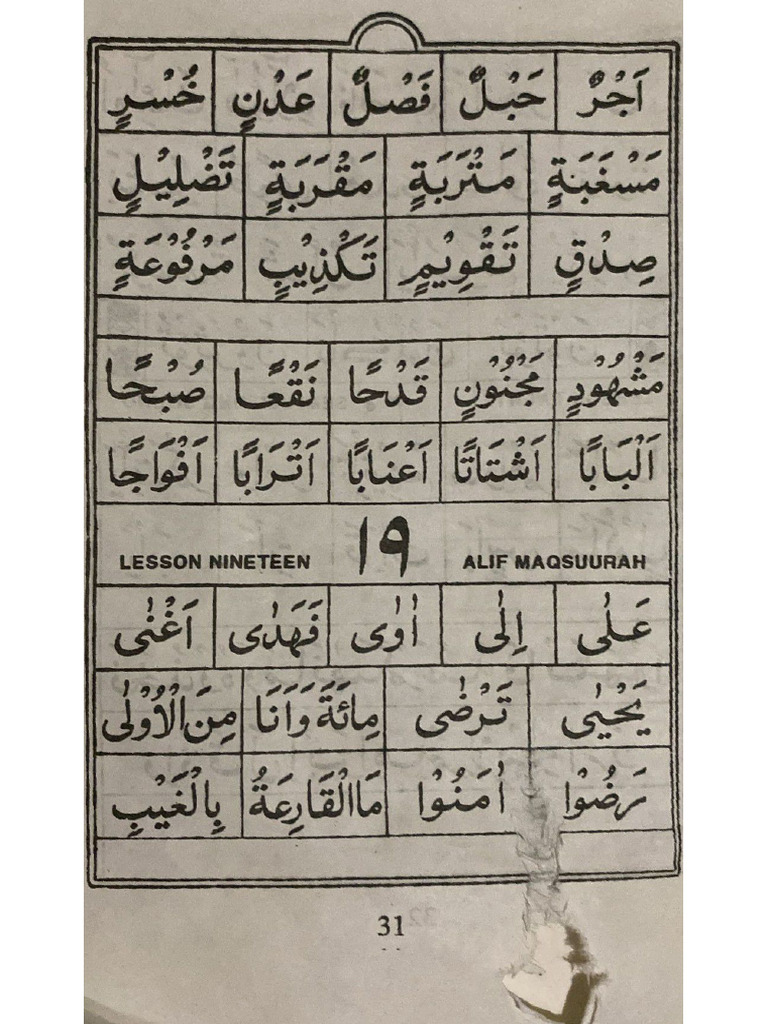 اَجْرٌ حَبْلٌ فَصْلٌ عَدْنٍ خُسْرٍ
مَسْغَبَةٍ مَتْرَبَةٍ مَقْرَبَةٍ تَضْلِيْلٍ
صِدْقٍ تَقْوِيْمٍ تَكْذِيْبٍ مَرْفُوْعَةٍ
مَشْهُوْدٍ مَجْنُوْنٍ قَدْحًا نَقْعًا صُبْحًا
اَلْبَابًا اَشْتَاتًا اَعْنَابًا اَتْرَابًا اَفْوَاجًا
LESSON NINETEEN ١٩ ALIF MAQSUURAH
عَلٰى اِلٰى اٰوٰى فَهَدٰى اَغْنٰى
يَحْيٰى تَرْضٰى مِائَةَ وَاَنَا مِنَ الْاُوْلٰى
رَضُوْا اٰمَنُوْا مَاالْقَارِعَةُ بِالْغَيْبِ
31